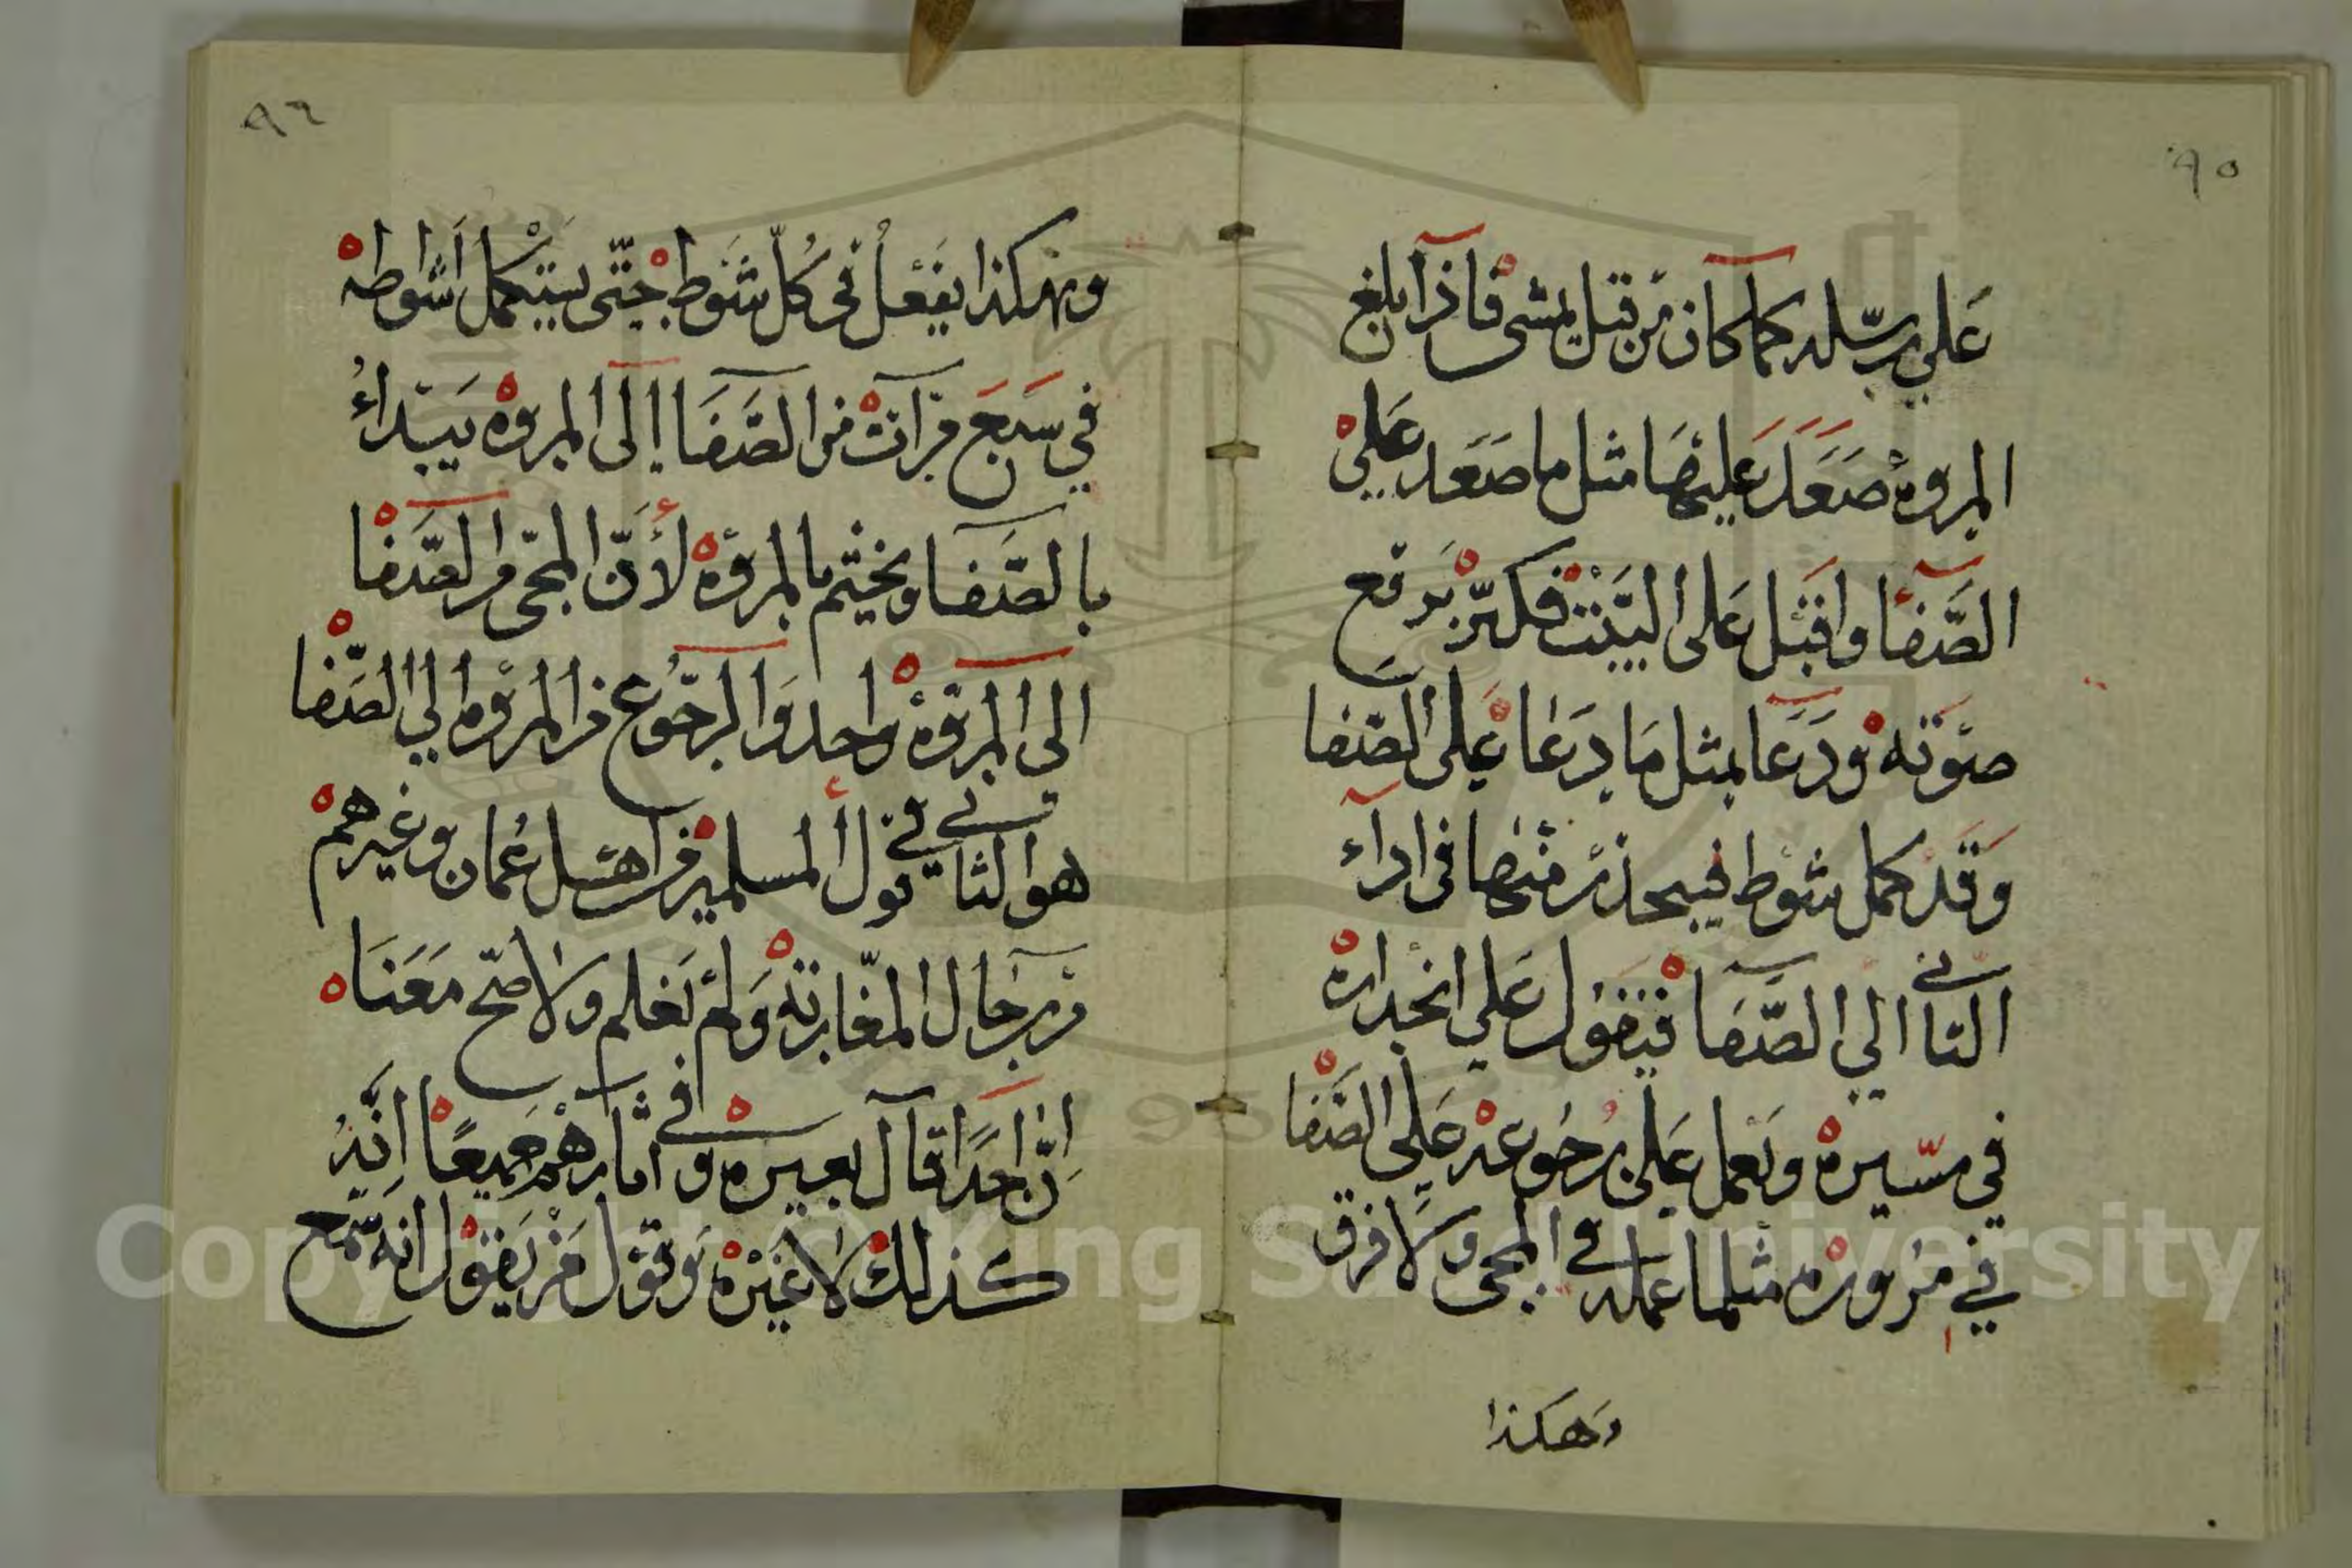 ٩٥
علي رسله كما كان من قبل يمشى فاذا بلغ
المروة صعد عليها مثل ما صعد علي
الصفا واقبل على البيت فكبر يرفع
صوته ودعا بمثل ما دعا على الصفا
وقد كمل شوط فيحذر منها فى اداء
الثانى الي الصفا فيقول علي انحداره
في مسيره ويعمل على رجوعه على الصفا
في مروره مثلما عمله في المجى ولا فرق
وهكذا
٩٦
وهكذا يفعل فى كل شوط حتى يستكمل اشواطه
في سبع مرات من الصفا إلى المروة يبداء
بالصفا ويختم بالمروة لأن المجى من الصفا
الى المروة واحد والرجوع من المروة الي الصفا
هو الثاني في قول المسلمين من اهل عمان وغيرهم
من رجال المغاربة ولم نعلم ولا صح معنا
إن احدا قال بغيره وفى اثارهم جميعا انه
كذلك لا غيره وقول من يقول انه سمع
Copyright © King Saud University